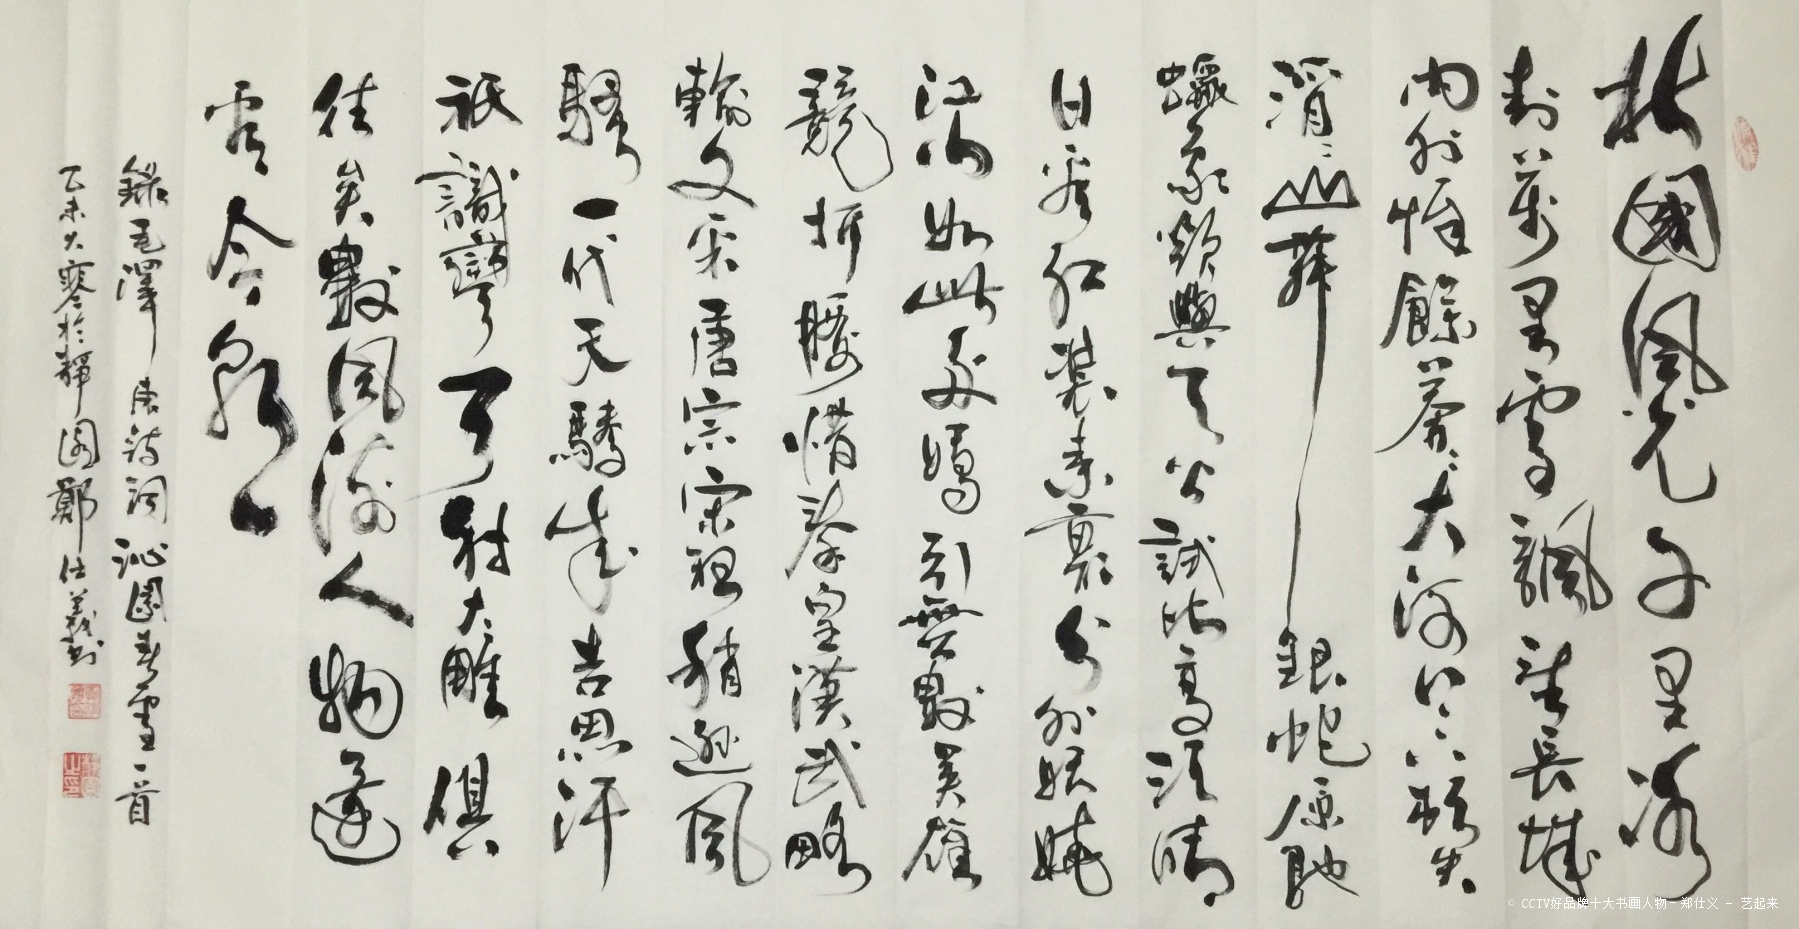 北國風光千里冰
封萬里雪飄望長城
內外惟餘莽莽大河上下頓失
滔滔山舞銀蛇原馳
蠟象欲與天公試比高須晴
日看紅裝素裹分外妖嬈
江山如此多嬌引無數英雄
競折腰惜秦皇漢武略
輸文采唐宗宋祖稍遜風
騷一代天驕成吉思汗
祇識彎弓射大雕俱
往矣數風流人物還
看今朝
錄毛澤東詩詞沁園春雪一首
乙未大寒於靜園鄭仕義書
© CCTV好品牌十大书画人物-郑仕义 - 艺起来